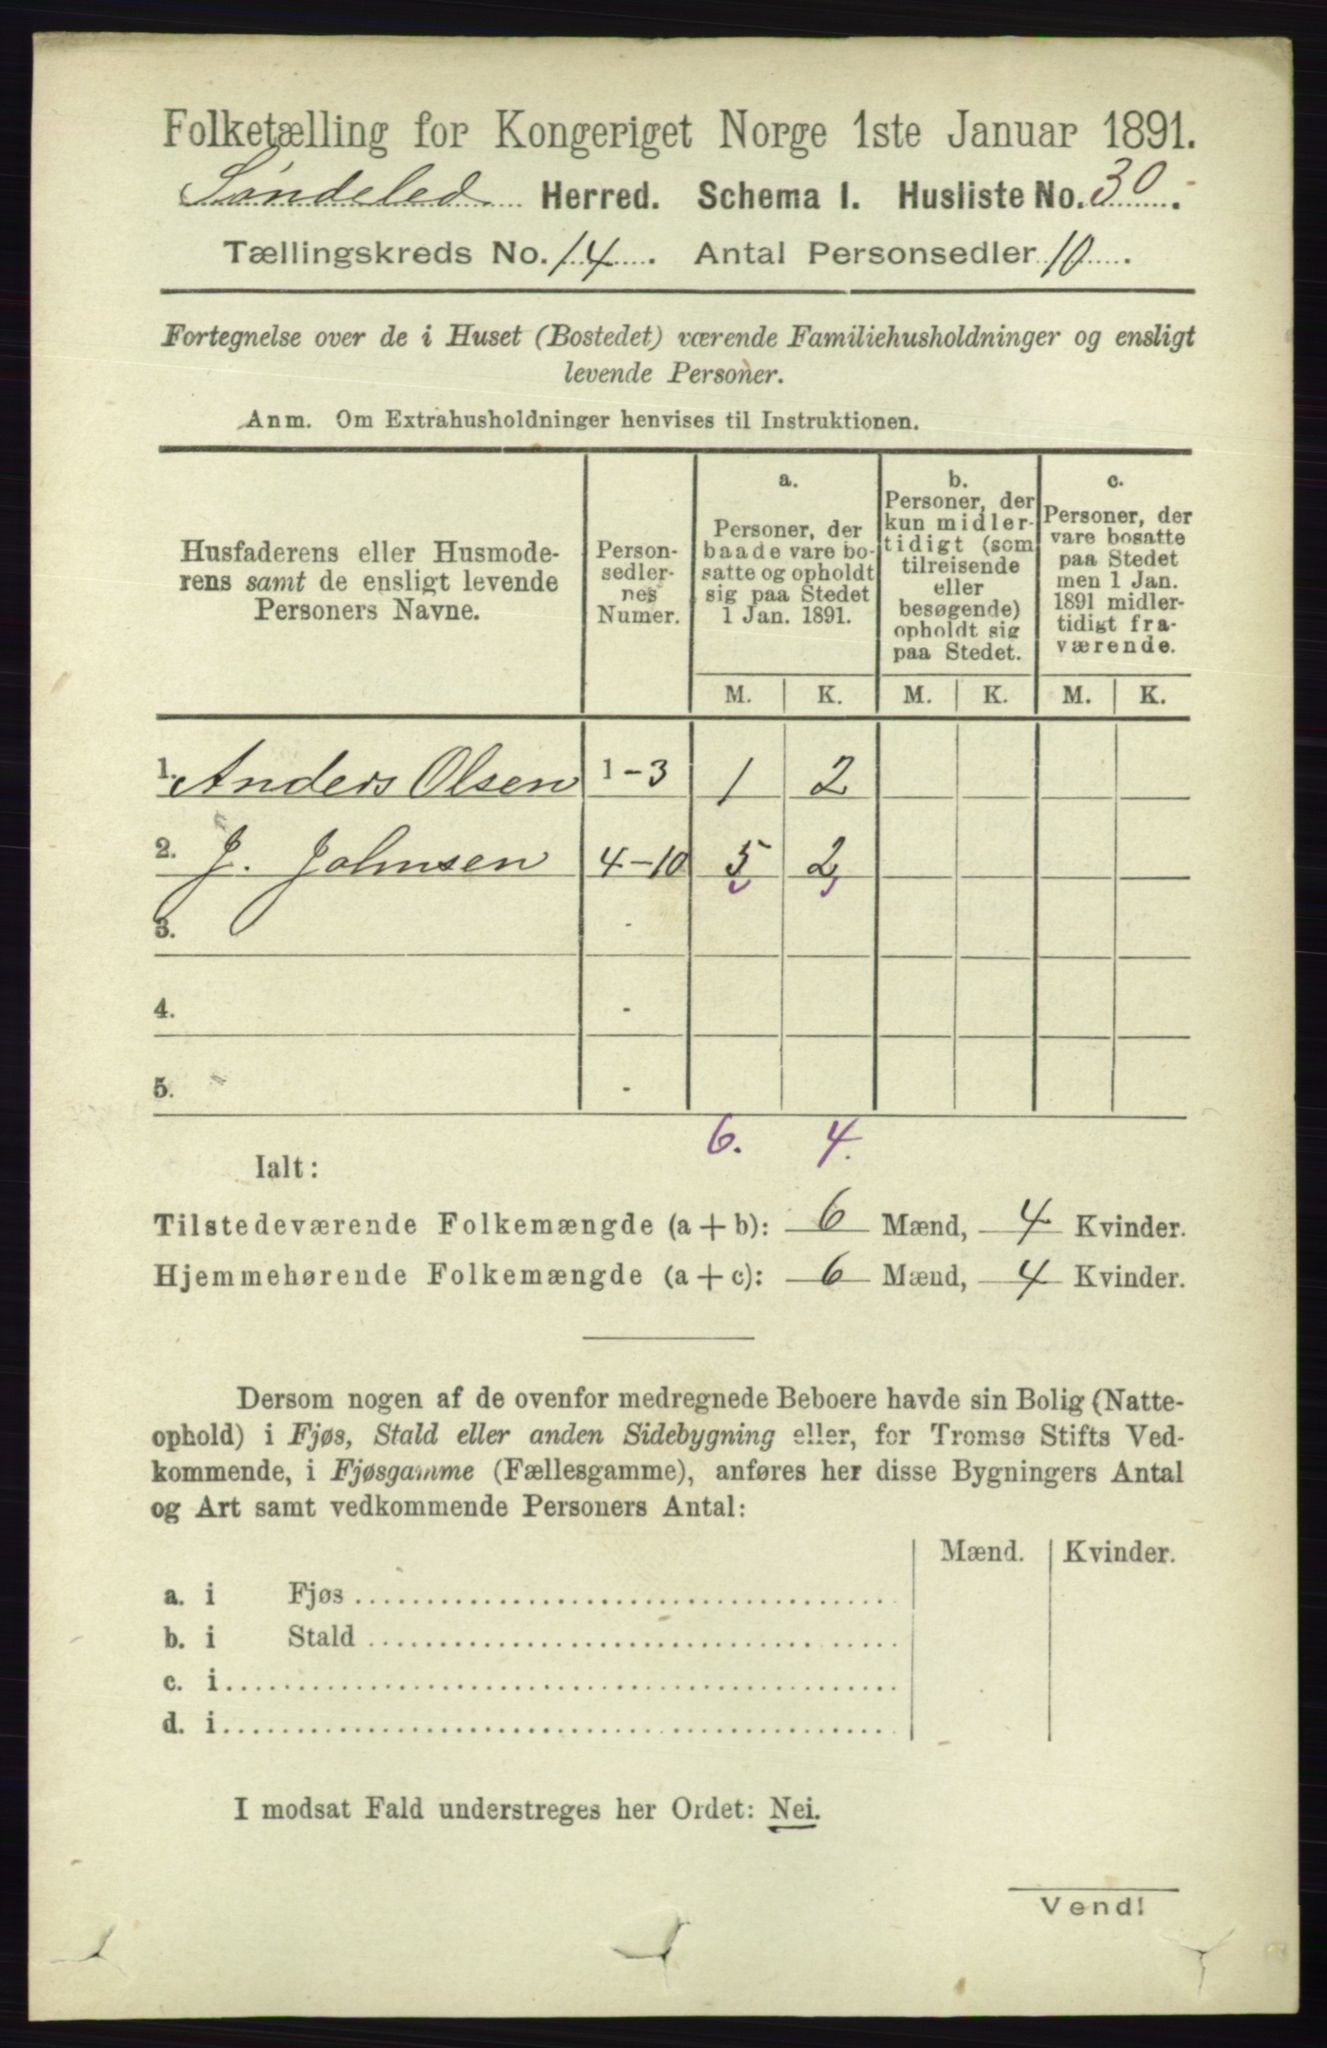 Folketælling for Kongeriget Norge 1ste Januar 1891.
Søndeled Herred. Schema I. Husliste No. 30.
Tællingskreds No. 14. Antal Personsedler 10.
Fortegnelse over de i Huset (Bostedet) værende Familiehusholdninger og ensligt
levende Personer.
Anm. Om Extrahusholdninger henvises til Instruktionen.
Husfaderens eller Husmode-
rens samt de ensligt levende
Personers Navne.
Person-
sedler-
nes
Numer.
a.
Personer, der
baade vare bo-
satte og opholdt
sig paa Stedet
1 Jan. 1891.
b.
Personer, der
kun midler-
tidigt (som
tilreisende
eller
besøgende)
opholdt sig
paa Stedet.
c.
Personer, der
vare bosatte
paa Stedet
men 1 Jan.
1891 midler-
tidigt fra-
værende.
M. K. M. K. M. K.
1. Anders Olsen 1-3 1 2
2. J. Johnsen 4-10 5 2
3. -
4. -
5. -
6. 4.
Ialt:
Tilstedeværende Folkemængde (a + b): 6 Mænd, 4 Kvinder.
Hjemmehørende Folkemængde (a + c): 6 Mænd, 4 Kvinder.
Dersom nogen af de ovenfor medregnede Beboere havde sin Bolig (Natte-
ophold) i Fjøs, Stald eller anden Sidebygning eller, for Tromsø Stifts Ved-
kommende, i Fjøsgamme (Fællesgamme), anføres her disse Bygningers Antal
og Art samt vedkommende Personers Antal:
Mænd. Kvinder.
a. i Fjøs
b. i Stald
c. i
d. i
I modsat Fald understreges her Ordet: Nei.
Vend!